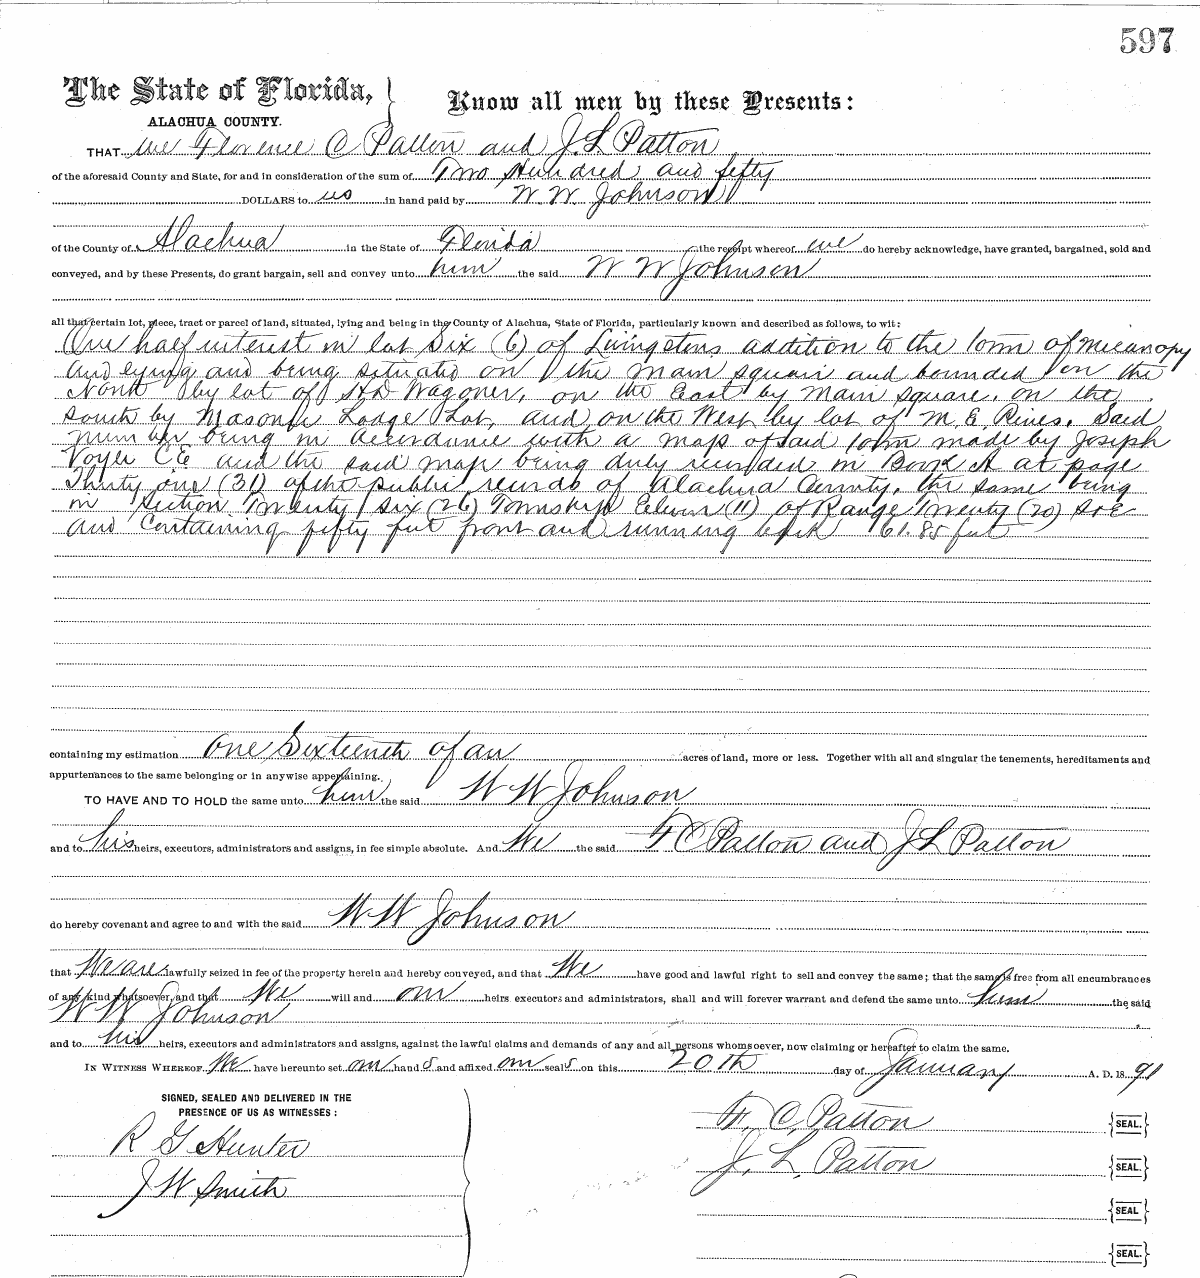 597
The State of Florida,
ALACHUA COUNTY.
Know all men by these Presents:
THAT we Florence C Patton and J. L Patton
of the aforesaid County and State, for and in consideration of the sum of Two Hundred and fifty
DOLLARS to us in hand paid by W. W. Johnson
of the County of Alachua in the State of Florida the receipt whereof we do hereby acknowledge, have granted, bargained, sold and
conveyed, and by these Presents, do grant bargain, sell and convey unto him the said W W Johnson
all that certain lot, piece, tract or parcel of land, situated, lying and being in the County of Alachua, State of Florida, particularly known and described as follows, to wit:
One half interest in lot Six (6) of Livingstons addition to the town of Micanopy
and lying and being situated on the main square and bounded on the
North by lot of H D Wagoner, on the East by Main square, on the
south by Masonic Lodge Lot, and on the West by lot of M. E. Rives. Said
number being in accordance with a map of said town made by Joseph
Voyle C E and the said map being duly recorded in Book A at page
Thirty one (31) of the public records of Alachua County. the same being
in Section Twenty six (26) Township Eleven (11) of Range Twenty (20) S & E
and containing fifty feet front and running back 61.85 feet
containing my estimation One Sixteenth of an acres of land, more or less. Together with all and singular the tenements, hereditaments and
appurtenances to the same belonging or in anywise appertaining.
TO HAVE AND TO HOLD the same unto him the said W W Johnson
and to his heirs, executors, administrators and assigns, in fee simple absolute. And We the said F C Patton and J L Patton
do hereby covenant and agree to and with the said W W Johnson
that We are lawfully seized in fee of the property herein and hereby conveyed, and that We have good and lawful right to sell and convey the same; that the same is free from all encumbrances
of any kind whatsoever, and that We will and our heirs executors and administrators, shall and will forever warrant and defend the same unto him the said
W W Johnson
and to his heirs, executors and administrators and assigns, against the lawful claims and demands of any and all persons whomsoever, now claiming or hereafter to claim the same.
IN WITNESS WHEREOF We have hereunto set our hand s and affixed our seal s on this 20th day of January A. D. 18 91
SIGNED, SEALED AND DELIVERED IN THE
PRESENCE OF US AS WITNESSES:
R G Hunter
J W Smith
F. C. Patton SEAL.
J. L. Patton SEAL.
SEAL
SEAL.